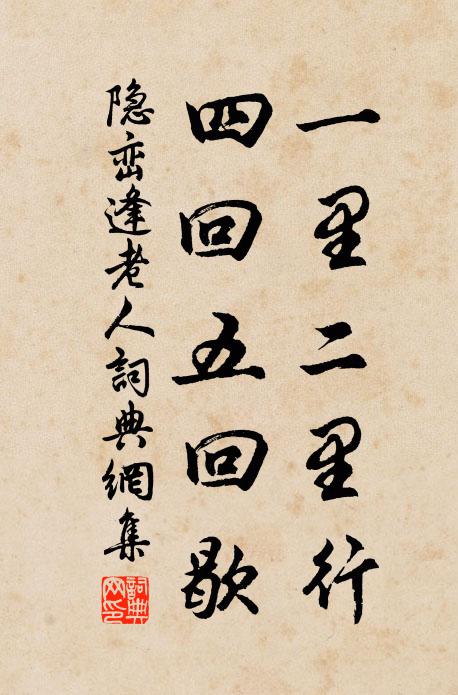 一里二里行
四回五回歇
隐峦逢老人詞典網集
詞典网印